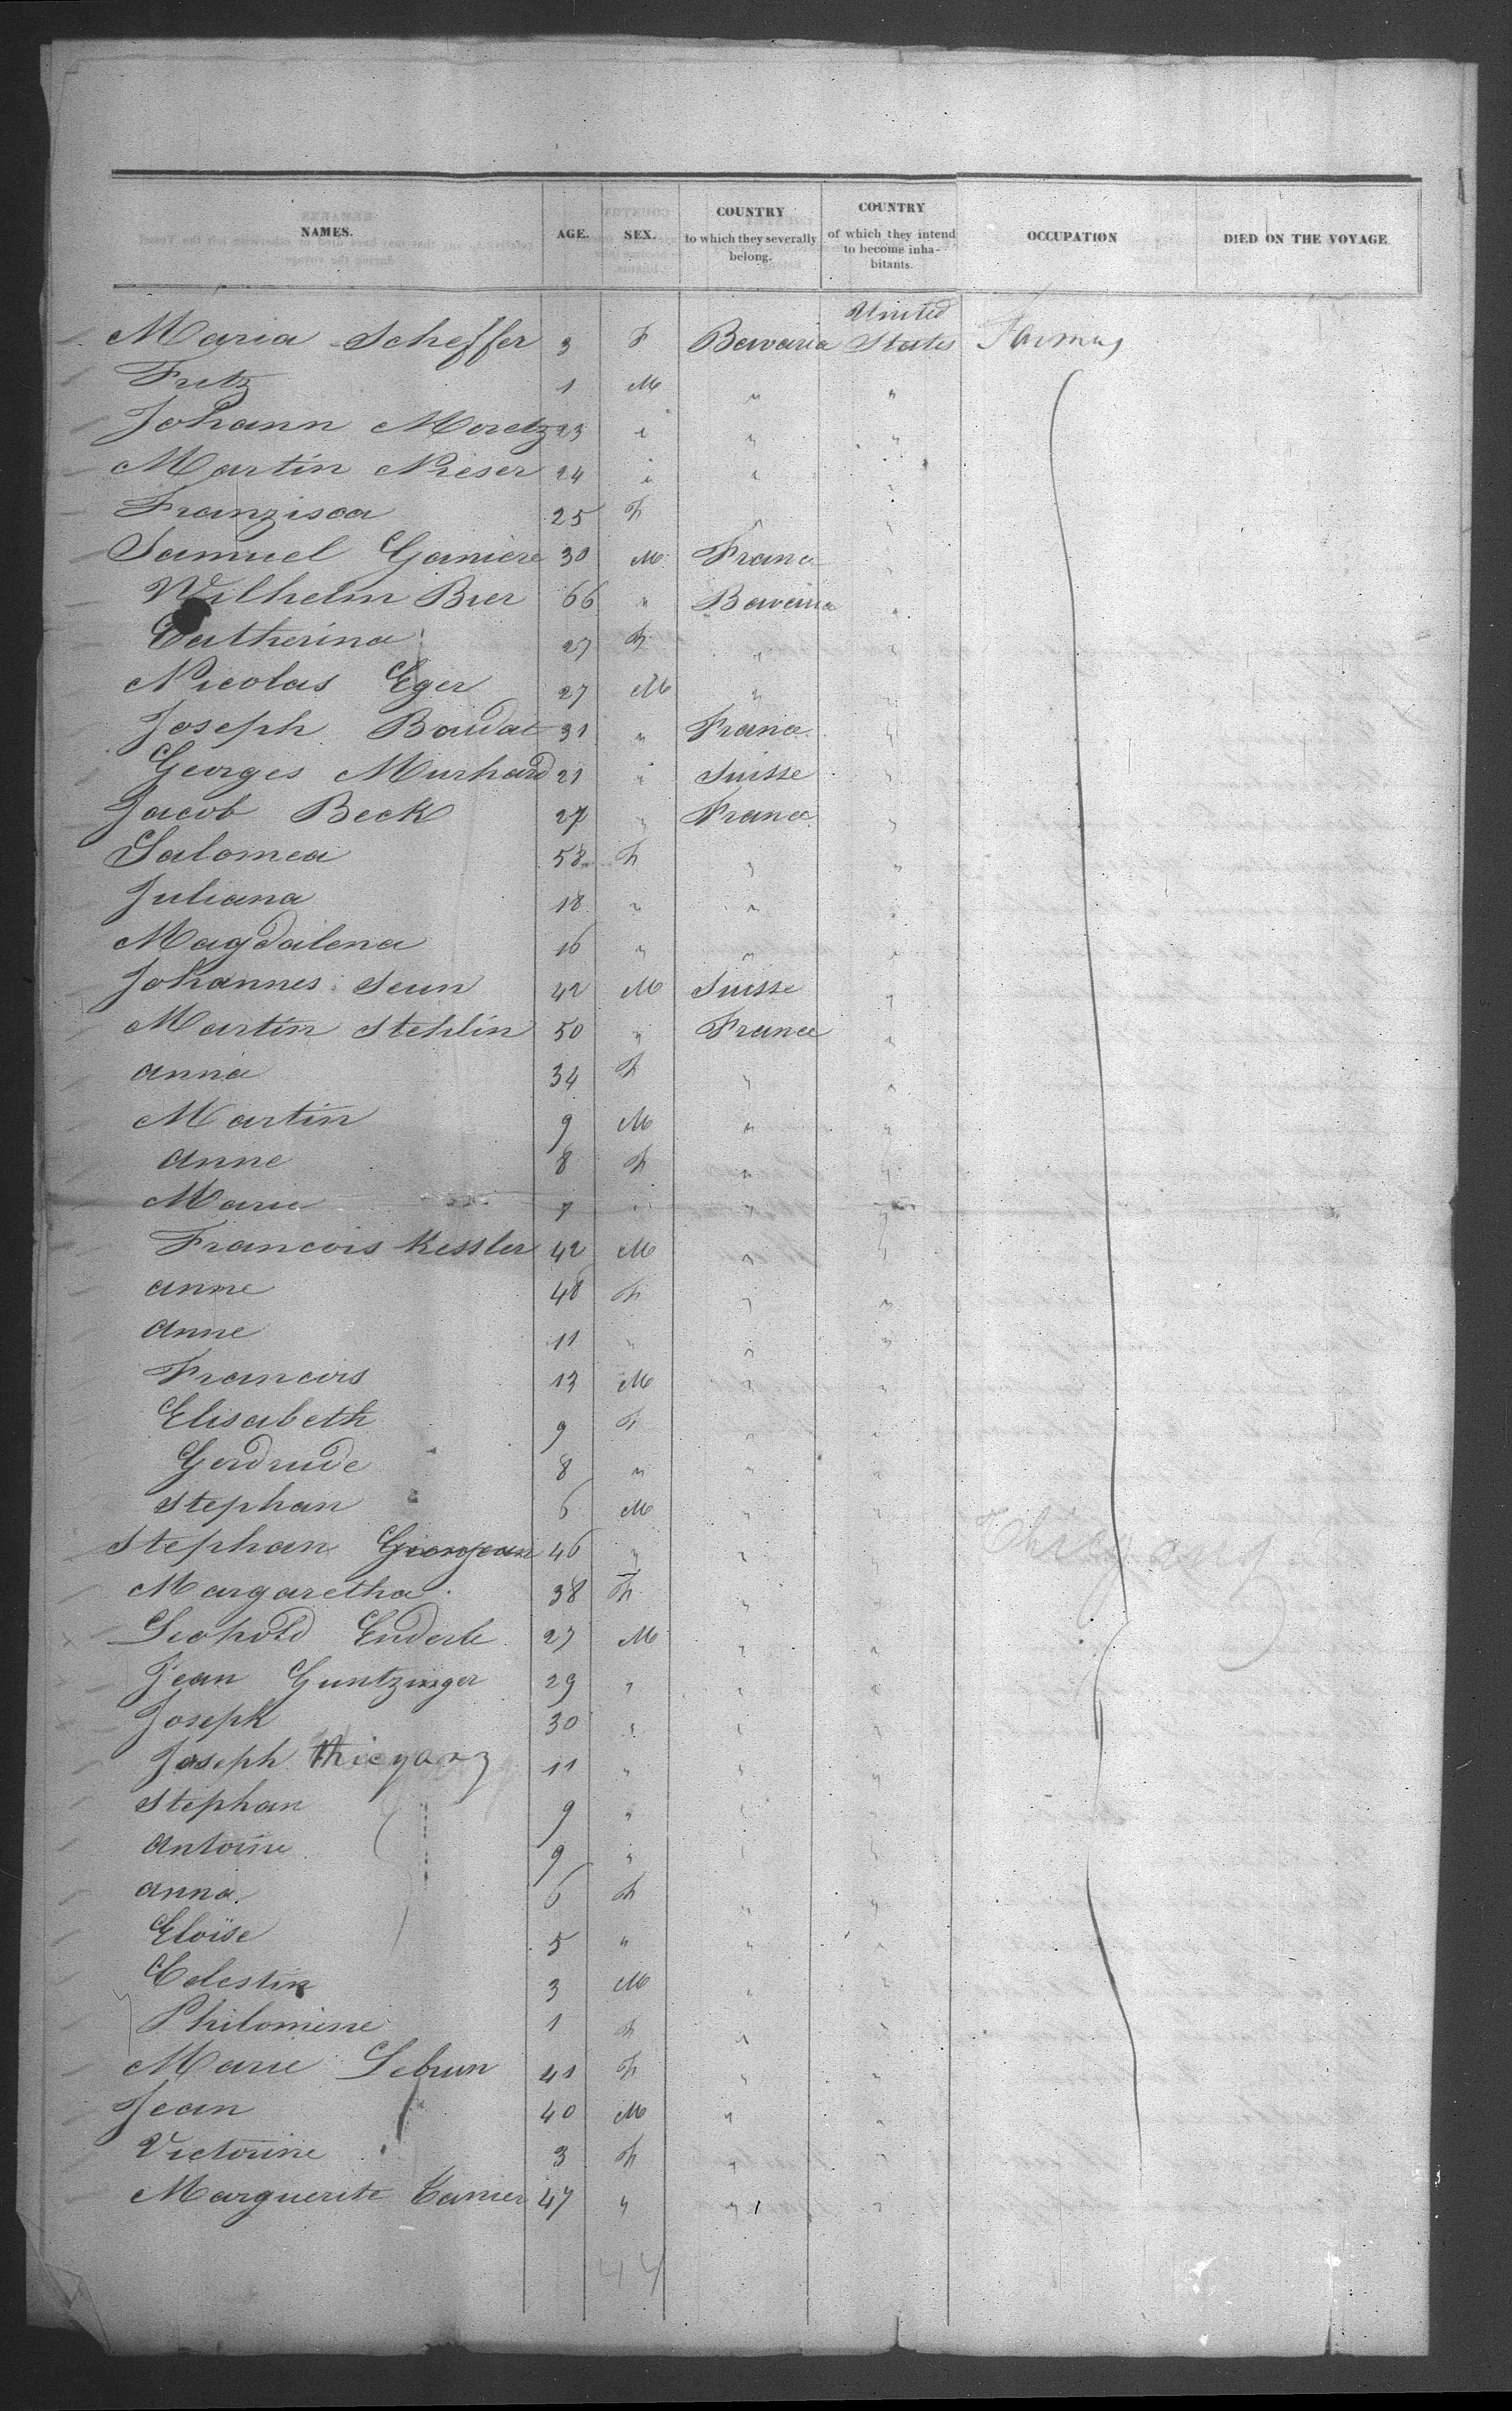 NAMES. AGE. SEX. COUNTRY to which they severally belong. COUNTRY of which they intend to become inhabitants. OCCUPATION DIED ON THE VOYAGE
Maria Scheffer 3 F Bavaria United States Farmers
Fritz 1 M " "
Johann Moretz 23 " " "
Martin Nieser 24 " " "
Franzisca 25 F " "
Samuel Ganiere 30 M France "
Wilhelm Bier 66 " Bavaria "
Catherina 27 F " "
Nicolas Eger 27 M " "
Joseph Boudat 31 " France "
Georges Murhard 21 " Suisse "
Jacob Beck 27 " France "
Salomea 58 F " "
Juliana 18 " " "
Magdalena 16 " " "
Johannes Senn 42 M Suisse "
Martin Stehlin 50 " France "
anna 34 F " "
Martin 9 M " "
anne 8 F " "
Marie 7 " " "
Francois Kessler 42 M " "
anne 48 F " "
anne 11 " " "
Francois 13 M " "
Elisabeth 9 F " "
Gerdrude 8 " " "
Stephan 6 M " "
Stephan 46 " " "
Margaretha 38 F " "
Leopold Enderle 27 M " "
Jean Guntzinger 29 " " "
Joseph 30 " " "
Joseph 11 " " "
Stephan 9 " " "
Antoine 9 " " "
anna 6 F " "
Eloïse 5 " " "
Celestin 3 M " "
Philomene 1 F " "
Marie Lebrun 41 F " "
Jean 40 M " "
Victorine 3 F " "
Marguerite 47 " " "
44